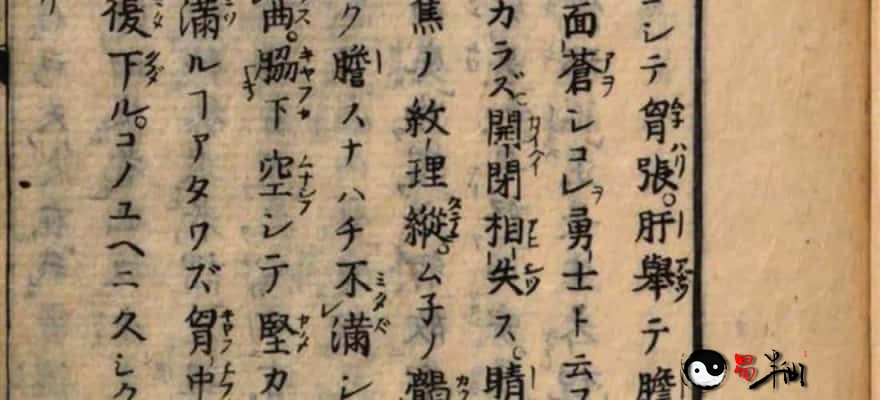 シテ胷張。肝舉テ膽
面蒼シコレ勇士ト云フ
カラズ開閉相失ス。睛
焦ノ紋理縱。ム子ノ
ク膽スナハチ不満シ
曲。脇下空シテ堅カ
満ルヿアタワズ胷中
後下ル。コノユヘニ久シク
易半仙